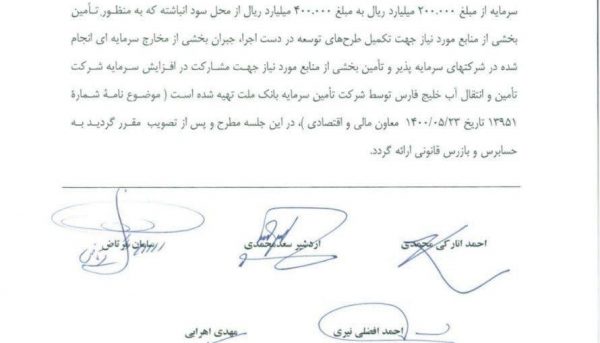 سرمایه از مبلغ ۲۰۰،۰۰۰ میلیارد ریال به مبلغ ۴۰۰،۰۰۰ میلیارد ریال از محل سود انباشته که به منظور تأمین
بخشی از منابع مورد نیاز جهت تکمیل طرح‌های توسعه در دست اجرا، جبران بخشی از مخارج سرمایه ای انجام
شده در شرکتهای سرمایه پذیر و تأمین بخشی از منابع مورد نیاز جهت مشارکت در افزایش سرمایه شرکت
تأمین و انتقال آب خلیج فارس توسط شرکت تأمین سرمایه بانک ملت تهیه شده است ( موضوع نامۀ شمارۀ
۱۳۹۵۱ تاریخ ۱۴۰۰/۰۵/۲۳ معاون مالی و اقتصادی )، در این جلسه مطرح و پس از تصویب مقرر گردید به
حسابرس و بازرس قانونی ارائه گردد.
احمد انارکی محمدی اردشیر سعدمحمدی سامان پرتاض
احمد افضلی نیری مهدی اهرابی